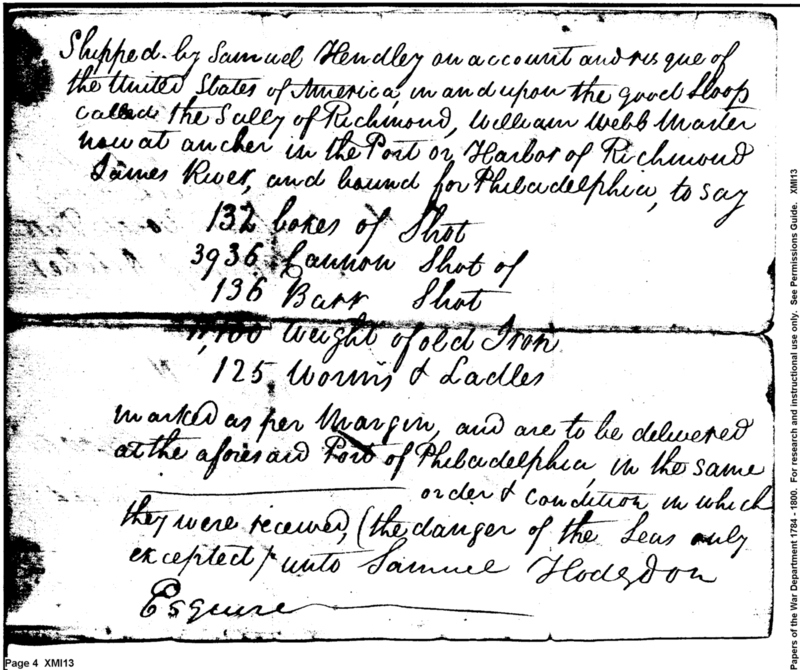 Shipped by Samuel Hendley on account and risque of
the United States of America, in and upon the good Sloop
called the Sally of Richmond, William Webb Master
now at ancher in the Port or Harbor of Richmond
James River, and bound for Philadelphia, to say
132 boxes of Shot
3936 Cannon Shot of
136 Barr Shot
Weight of old Iron
125 Worms & Ladles
marked as per Margin, and are to be delivered
at the aforesaid Port of Philadelphia, in the same
order & condition in which
they were received, (the danger of the Seas only
excepted) unto Samuel Hodgdon
Esquire
Page 4 XMI13
Papers of the War Department 1784 - 1800. For research and instructional use only. See Permissions Guide. XMI13